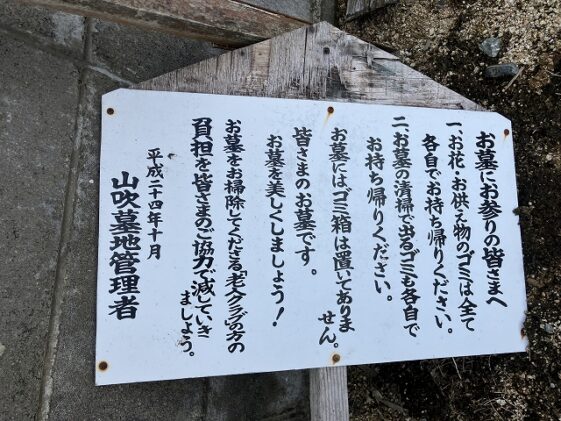 お墓にお参りの皆さまへ
一、お花・お供え物のゴミは全て
各自でお持ち帰りください。
二、お墓の清掃で出るゴミも各自で
お持ち帰りください。
お墓にはゴミ箱は置いてありま
せん。
皆さまのお墓です。
お墓を美しくしましょう！
お墓をお掃除してくださる「老人クラブ」の方の
負担を皆さまのご協力で減していき
ましょう。
平成二十四年十月
山吹墓地管理者